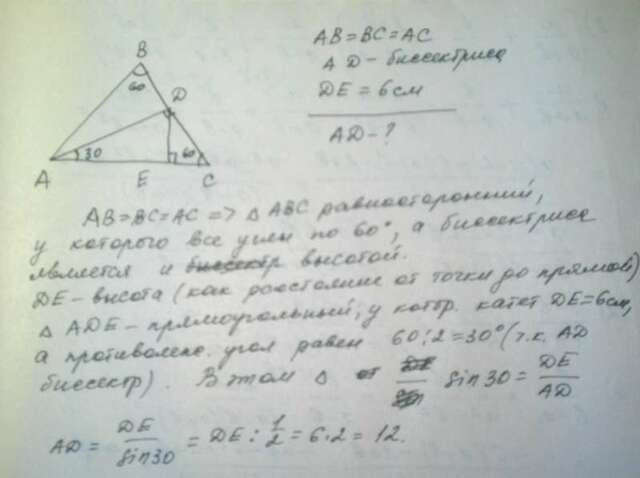 B
60
D
30
60
A
E
C
AB=BC=AC
AD - биссектриса
DE = 6 см
AD - ?
AB=BC=AC => △ ABC равносторонний,
у которого все углы по 60°, а биссектриса
является и высотой.
DE - высота (как расстояние от точки до прямой)
△ ADE - прямоугольный, у котор. катет DE=6см,
а противолеж. угол равен 60:2=30° (т.к. AD
биссектр). В этом △ sin30 = DE/AD
AD = DE/sin30 = DE : 1/2 = 6·2 = 12.